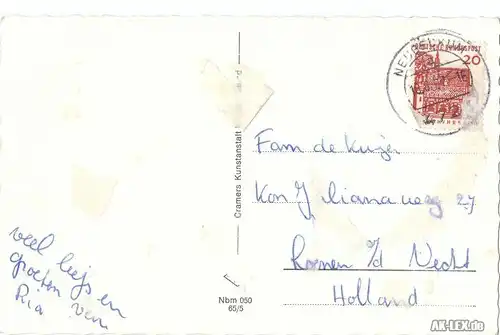 veel liefs en
groeten van
Ria
Cramers Kunstanstalt
Nbm 050
65/5
DEUTSCHE BUNDESPOST
20
Fam de
Kon Julianaweg 27
Loenen a/d Vecht
Holland
AK-LEX.de